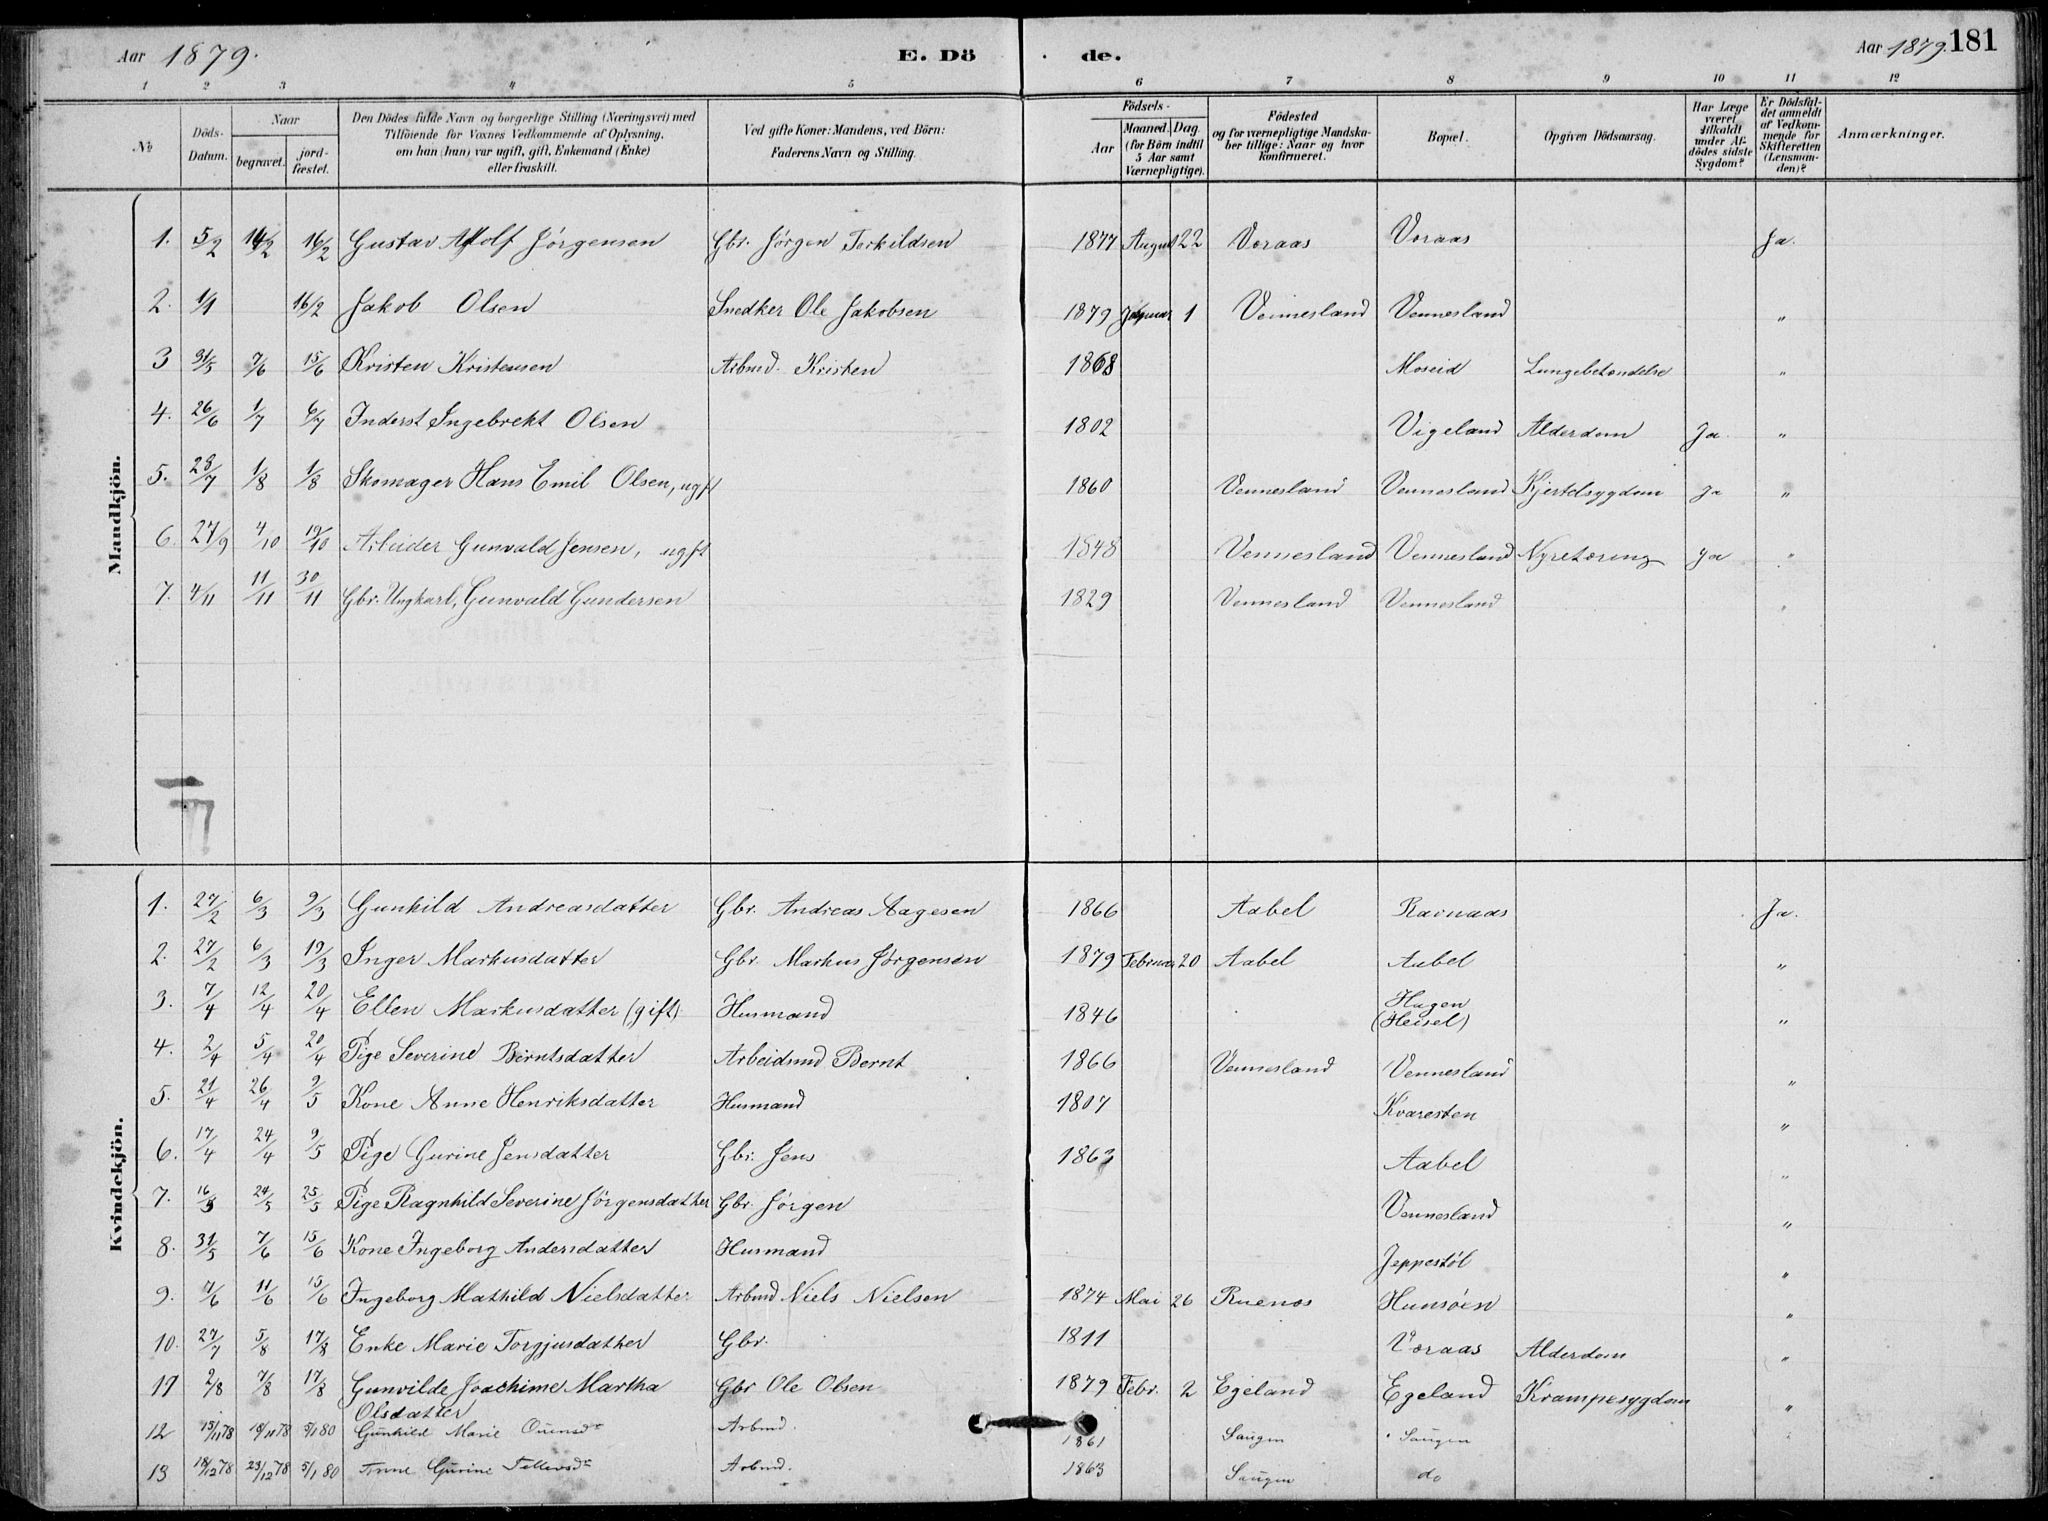 Aar 1879. E. Dö de. Aar 1879. 181
1 2 3 4 5 6 7 8 9 10 11 12
№ Döds-Datum. Naar begravet. jordfæstet. Den Dödes fulde Navn og borgerlige Stilling (Næringsvei) med Tilföiende for Voxnes Vedkommende af Oplysning, om han (hun) var ugift, gift, Enkemand (Enke) eller fraskilt. Ved gifte Koner: Mandens, ved Börn: Faderens Navn og Stilling. Födsels- Aar Maaned. Dag. (for Börn indtil 5 Aar samt Værnepligtige). Födested og for værnepligtige Mandskaber tillige: Naar og hvor konfirmeret. Bopæl. Opgiven Dödsaarsag. Har Læge været tilkaldt under Afdödes sidste Sygdom? Er Dödsfaldet anmeldt af Vedkommende for Skifteretten (Lensmanden)? Anmærkninger.
Mandkjön.
1. 5/2 14/2 16/2 Gustav Adolf Jørgensen Gbr. Jørgen Terkildsen 1877 August 22 Voraas Voraas Ja.
2. 1/1 16/2 Jakob Olsen Snedker Ole Jakobsen 1879 Januar 1 Vennesland Vennesland "
3 31/5 7/6 15/6 Kristen Kristensen Arbmd. Kristen 1868 Moseid Lungebetændelse "
4. 26/6 1/7 6/7 Inderst Ingebrekt Olsen 1802 Vigeland Alderdom Ja. "
5. 28/7 1/8 1/8 Skomager Hans Emil Olsen, ugft 1860 Vennesland Vennesland Kjertelsygdom Ja "
6. 27/9 4/10 19/10 Arbeider Gunvald Jensen, ugft 1848 Vennesland Vennesland Nyretæring Ja "
7. 4/11 11/11 30/11 Gbr. Ungkarl, Gunvald Gundersen 1829 Vennesland Vennesland "
Kvindekjön.
1. 27/2 6/3 9/3 Gunhild Andreasdatter Gbr. Andreas Aagesen 1866 Aabel Ravnaas Ja.
2. 27/2 6/3 19/3 Inger Markusdatter Gbr. Markus Jørgensen 1879 Februar 20 Aabel Aabel "
3. 7/4 12/4 20/4 Ellen Markusdatter (gift) Husmand 1846 Hagen (Heisel) "
4. 2/4 5/4 20/4 Pige Severine Berntsdatter Arbeidsmd Bernt 1866 Vennesland Vennesland "
5. 21/4 26/4 9/5 Kone Anne Henriksdatter Husmand 1807 Kvaresten "
6. 17/4 24/4 9/5 Pige Gurine Jensdatter Gbr. Jens 1863 Aabel "
7. 16/5 24/5 25/5 Pige Ragnhild Severine Jørgensdatter Gbr. Jørgen Vennesland "
8. 31/5 7/6 15/6 Kone Ingeborg Andersdatter Husmand Jeppestøl "
9. 7/6 11/6 15/6 Ingeborg Mathild Nielsdatter Arbmd Niels Nielsen 1874 Mai 26 Ruenes Hunsøen "
10. 27/7 5/8 17/8 Enke Marie Torgjusdatter Gbr. 1811 Voraas Alderdom "
11 2/8 7/8 17/8 Gunvilde Joachime Martha Gbr Ole Olsen 1879 Febr. 2 Egeland Egeland Krampesygdom "
Olsdatter
12 15/11 78 18/11 78 5/1 80 Gunhild Marie Ouensdr Arbmd. 1861 Saugen Saugen "
13 18/12 78 23/12 78 5/1 80 Anne Gurine Tellevsdr Arbmd. 1863 Saugen do